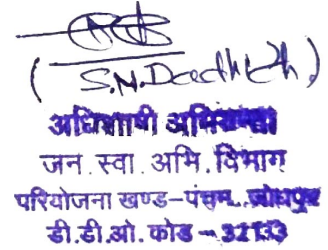 ( S.M. Daedhich )
अधिशाषी अभियन्ता
जन. स्वा. अभि. विभाग
परियोजना खण्ड-पंचम.. जोधपुर
डी.डी.ओ. कोड - 32133